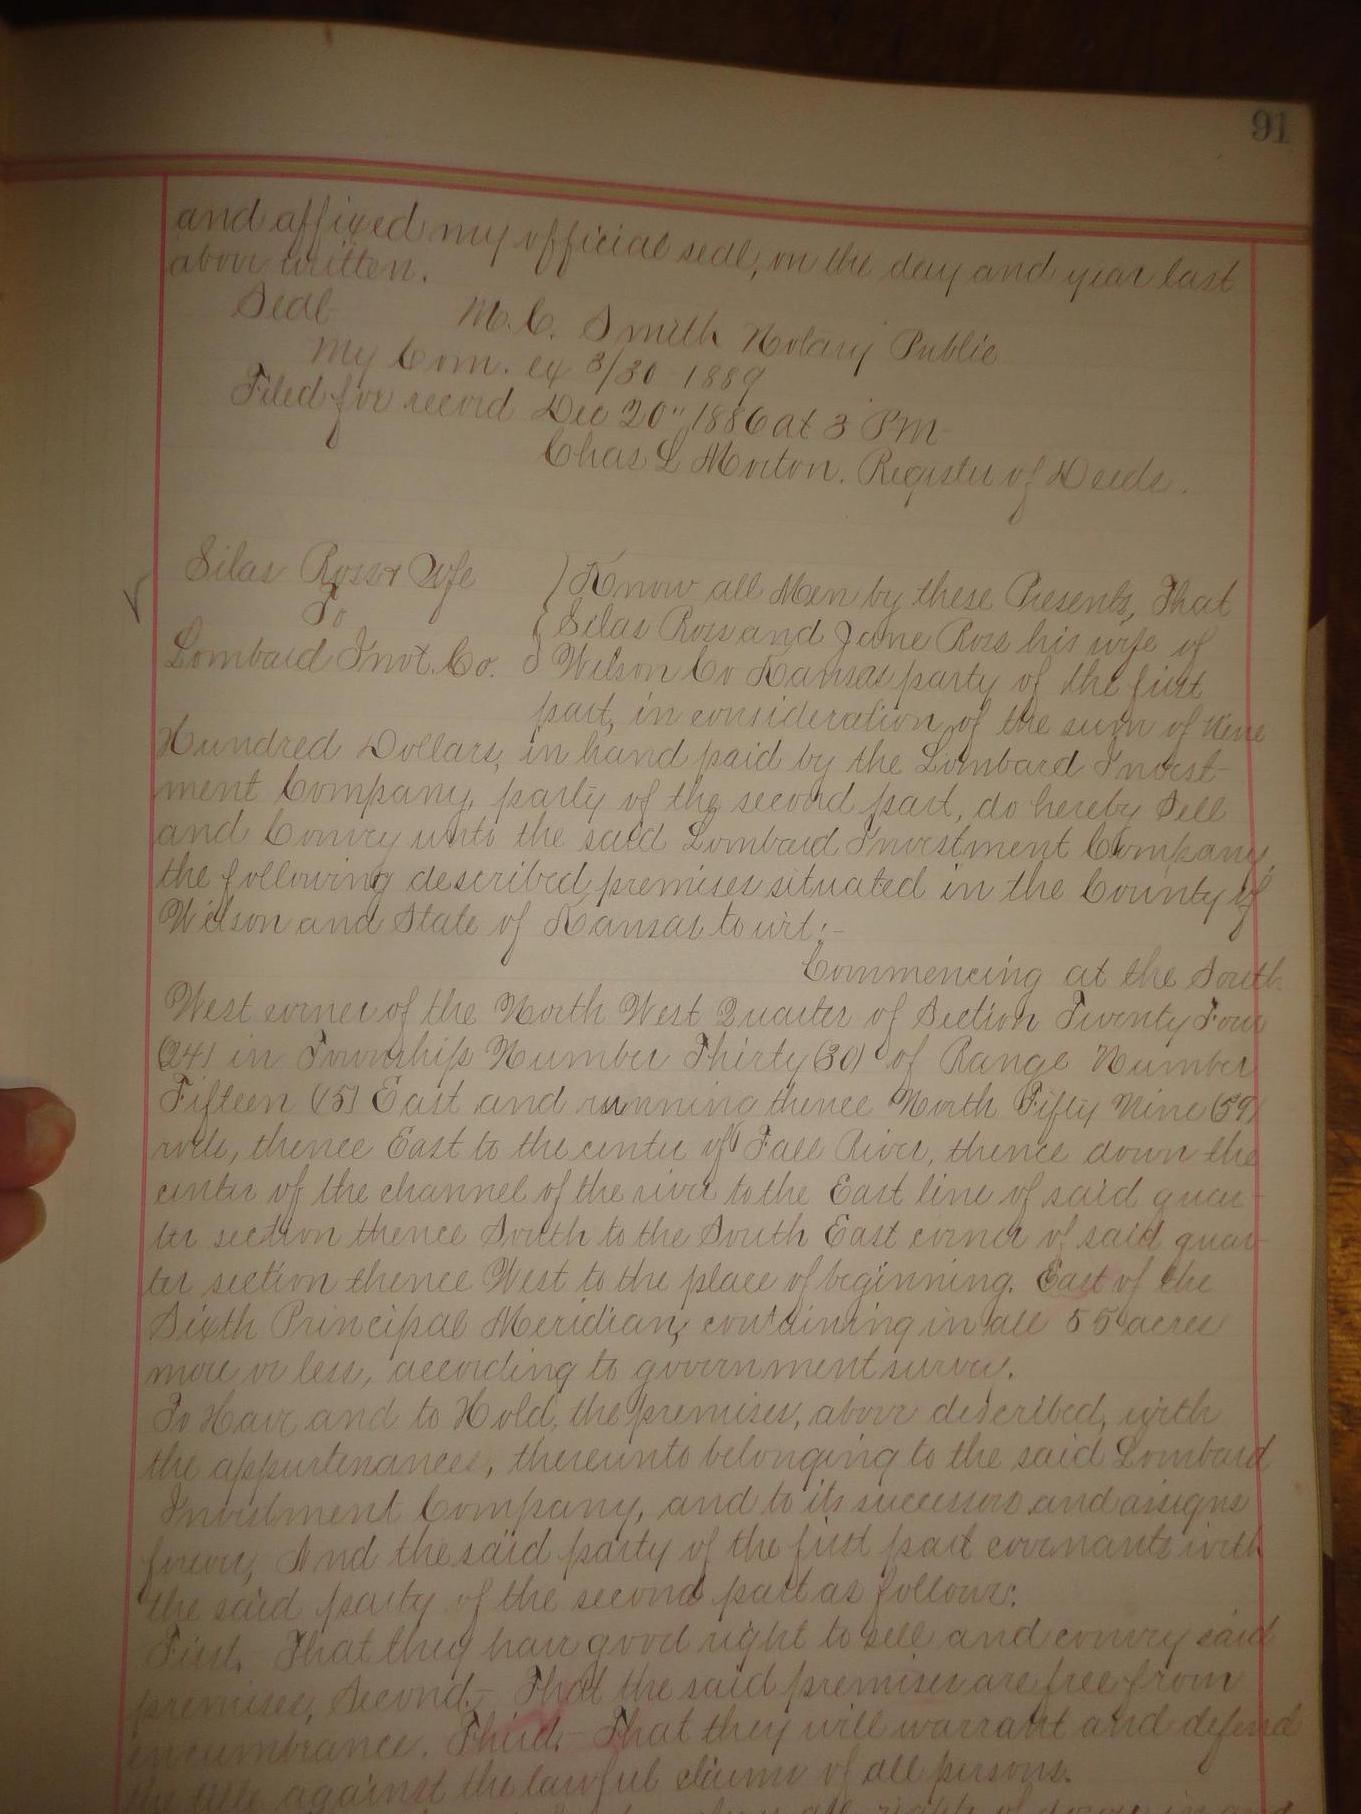 91
and affixed my official seal, on the day and year last
above written.
Seal M. C. Smith Notary Public
My Com. ex 3/30 1889
Filed for record Dec 20" 1886 at 3 PM
Chas L Morton. Register of Deeds.
Silas Ross & Wife
To
Lombard Invt. Co.
Know all Men by these Presents, That
Silas Ross and Jane Ross his wife of
Wilson Co Kansas party of the first
part, in consideration of the sum of Nine
Hundred Dollars, in hand paid by the Lombard Invest-
ment Company, party of the second part, do hereby Sell
and Convey unto the said Lombard Investment Company,
the following described premises situated in the County of
Wilson and State of Kansas to wit:-
Commencing at the South
West corner of the North West Quarter of Section Twenty Four
(24) in Township Number Thirty (30) of Range Number
Fifteen (15) East and running thence North Fifty Nine (59)
rods, thence East to the center of Fall River, thence down the
center of the channel of the river to the East line of said quar-
ter section thence South to the South East corner of said quar-
ter section thence West to the place of beginning. East of the
Sixth Principal Meridian, containing in all 55 acres
more or less, according to government survey.
To Have and to Hold, the premises, above described, with
the appurtenances, thereunto belonging to the said Lombard
Investment Company, and to its successors and assigns
forever, And the said party of the first part covenants with
the said party of the second part as follows:
First, That they have good right to sell and convey said
premises, Second,- That the said premises are free from
encumbrance. Third,- That they will warrant and defend
the title against the lawful claims of all persons.
all rights of